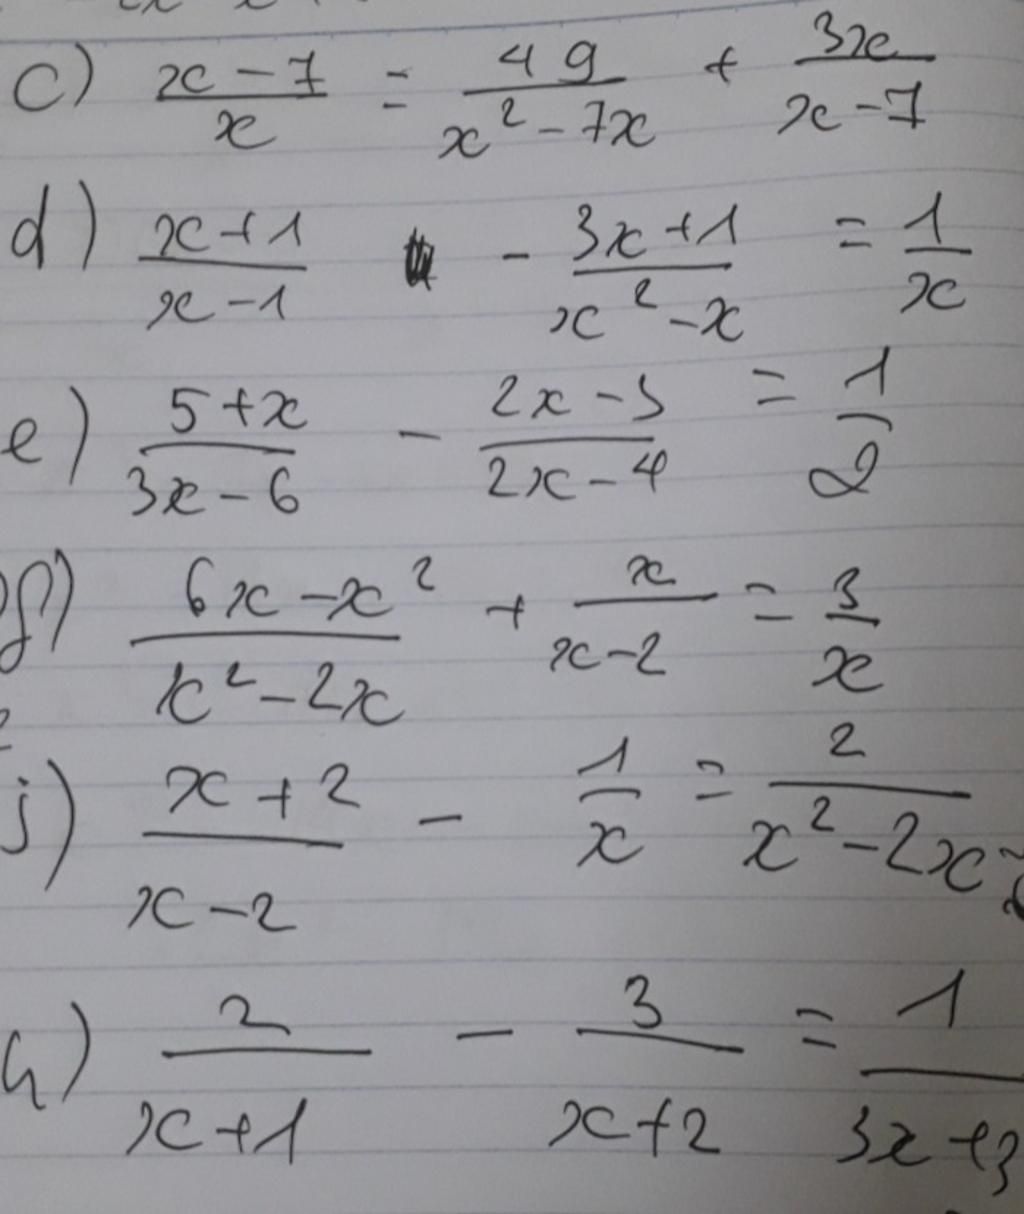 c) (x-7)/x = 49/(x²-7x) + 3x/(x-7)
d) (x+1)/(x-1) - (3x+1)/(x²-x) = 1/x
e) (5+x)/(3x-6) - (2x-3)/(2x-4) = 1/2
f) (6x-x²)/(x²-2x) + x/(x-2) = 3/x
j) (x+2)/(x-2) - 1/x = 2/(x²-2x)
h) 2/(x+1) - 3/(x+2) = 1/(3x+3)